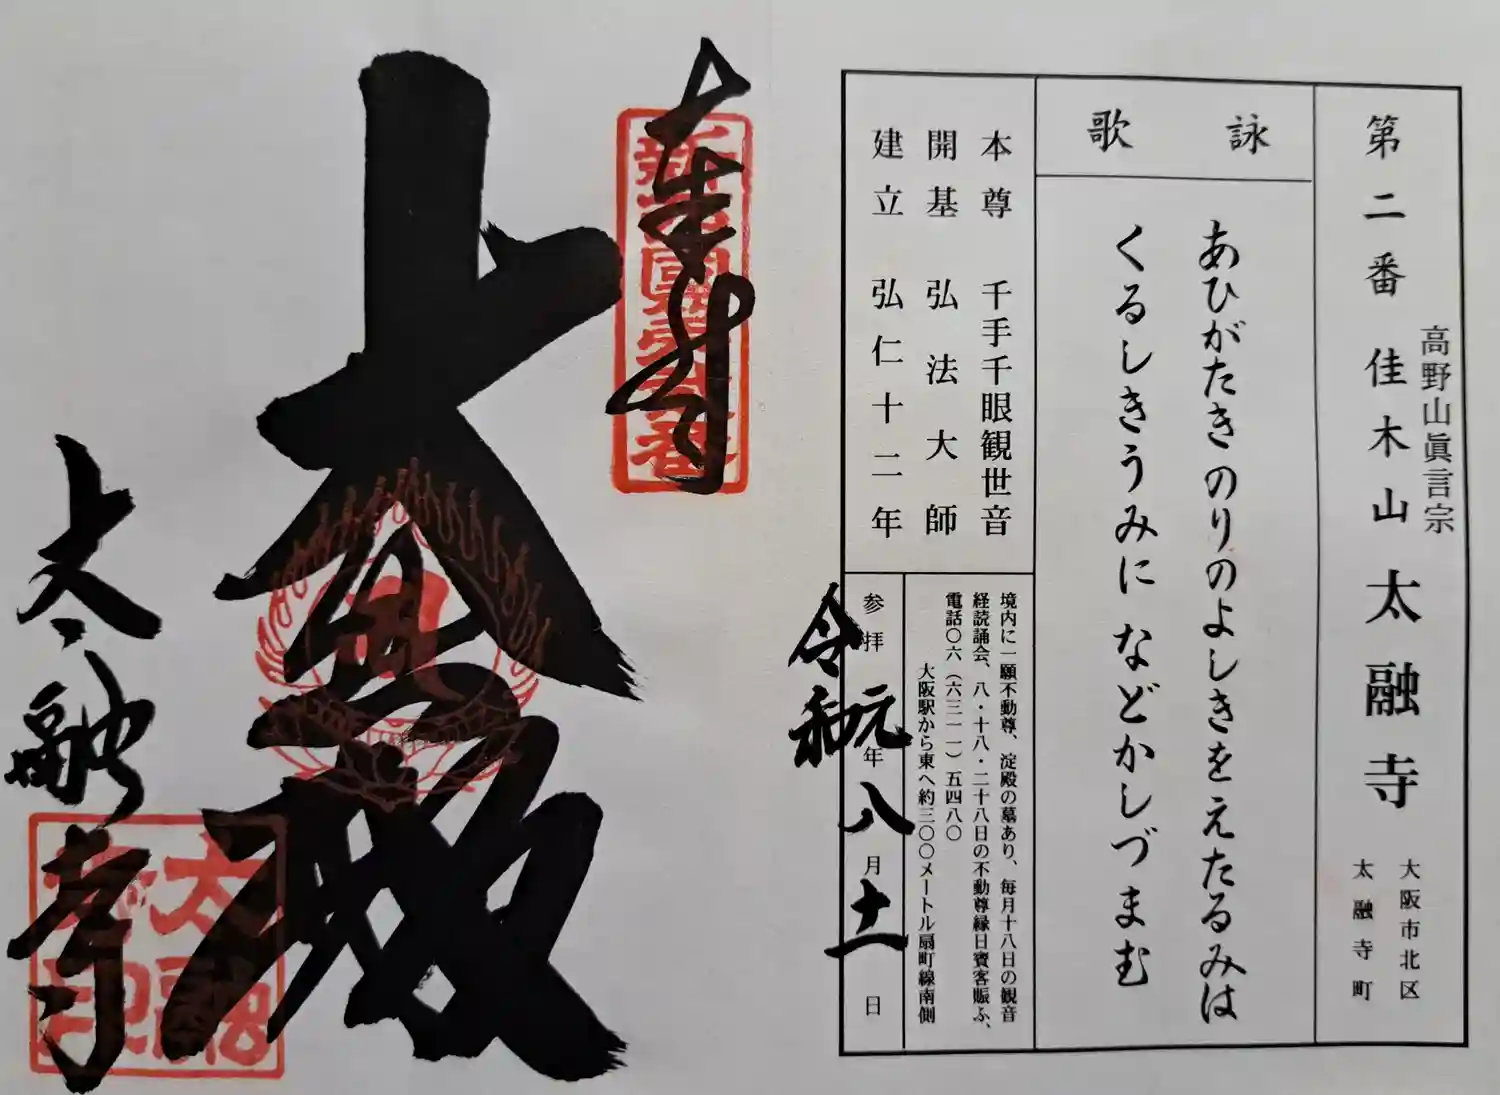 第二番 佳木山 太融寺
高野山眞言宗
大阪市北区
太融寺町
詠歌
あひがたきのりのよしきをえたるみは
くるしきうみになどかしづまむ
本尊 千手千眼観世音
開基 弘法大師
建立 弘仁十二年
境内に一願不動尊、淀殿の墓あり、毎月十八日の観音
経読誦会、八・十八・二十八日の不動尊縁日賓客賑ふ、
電話〇六(六三一一)五四八〇
大阪駅から東へ約三〇〇メートル扇町線南側
参拝 令和元年八月十一日
奉拝
大悲殿
太融寺
太融寺印